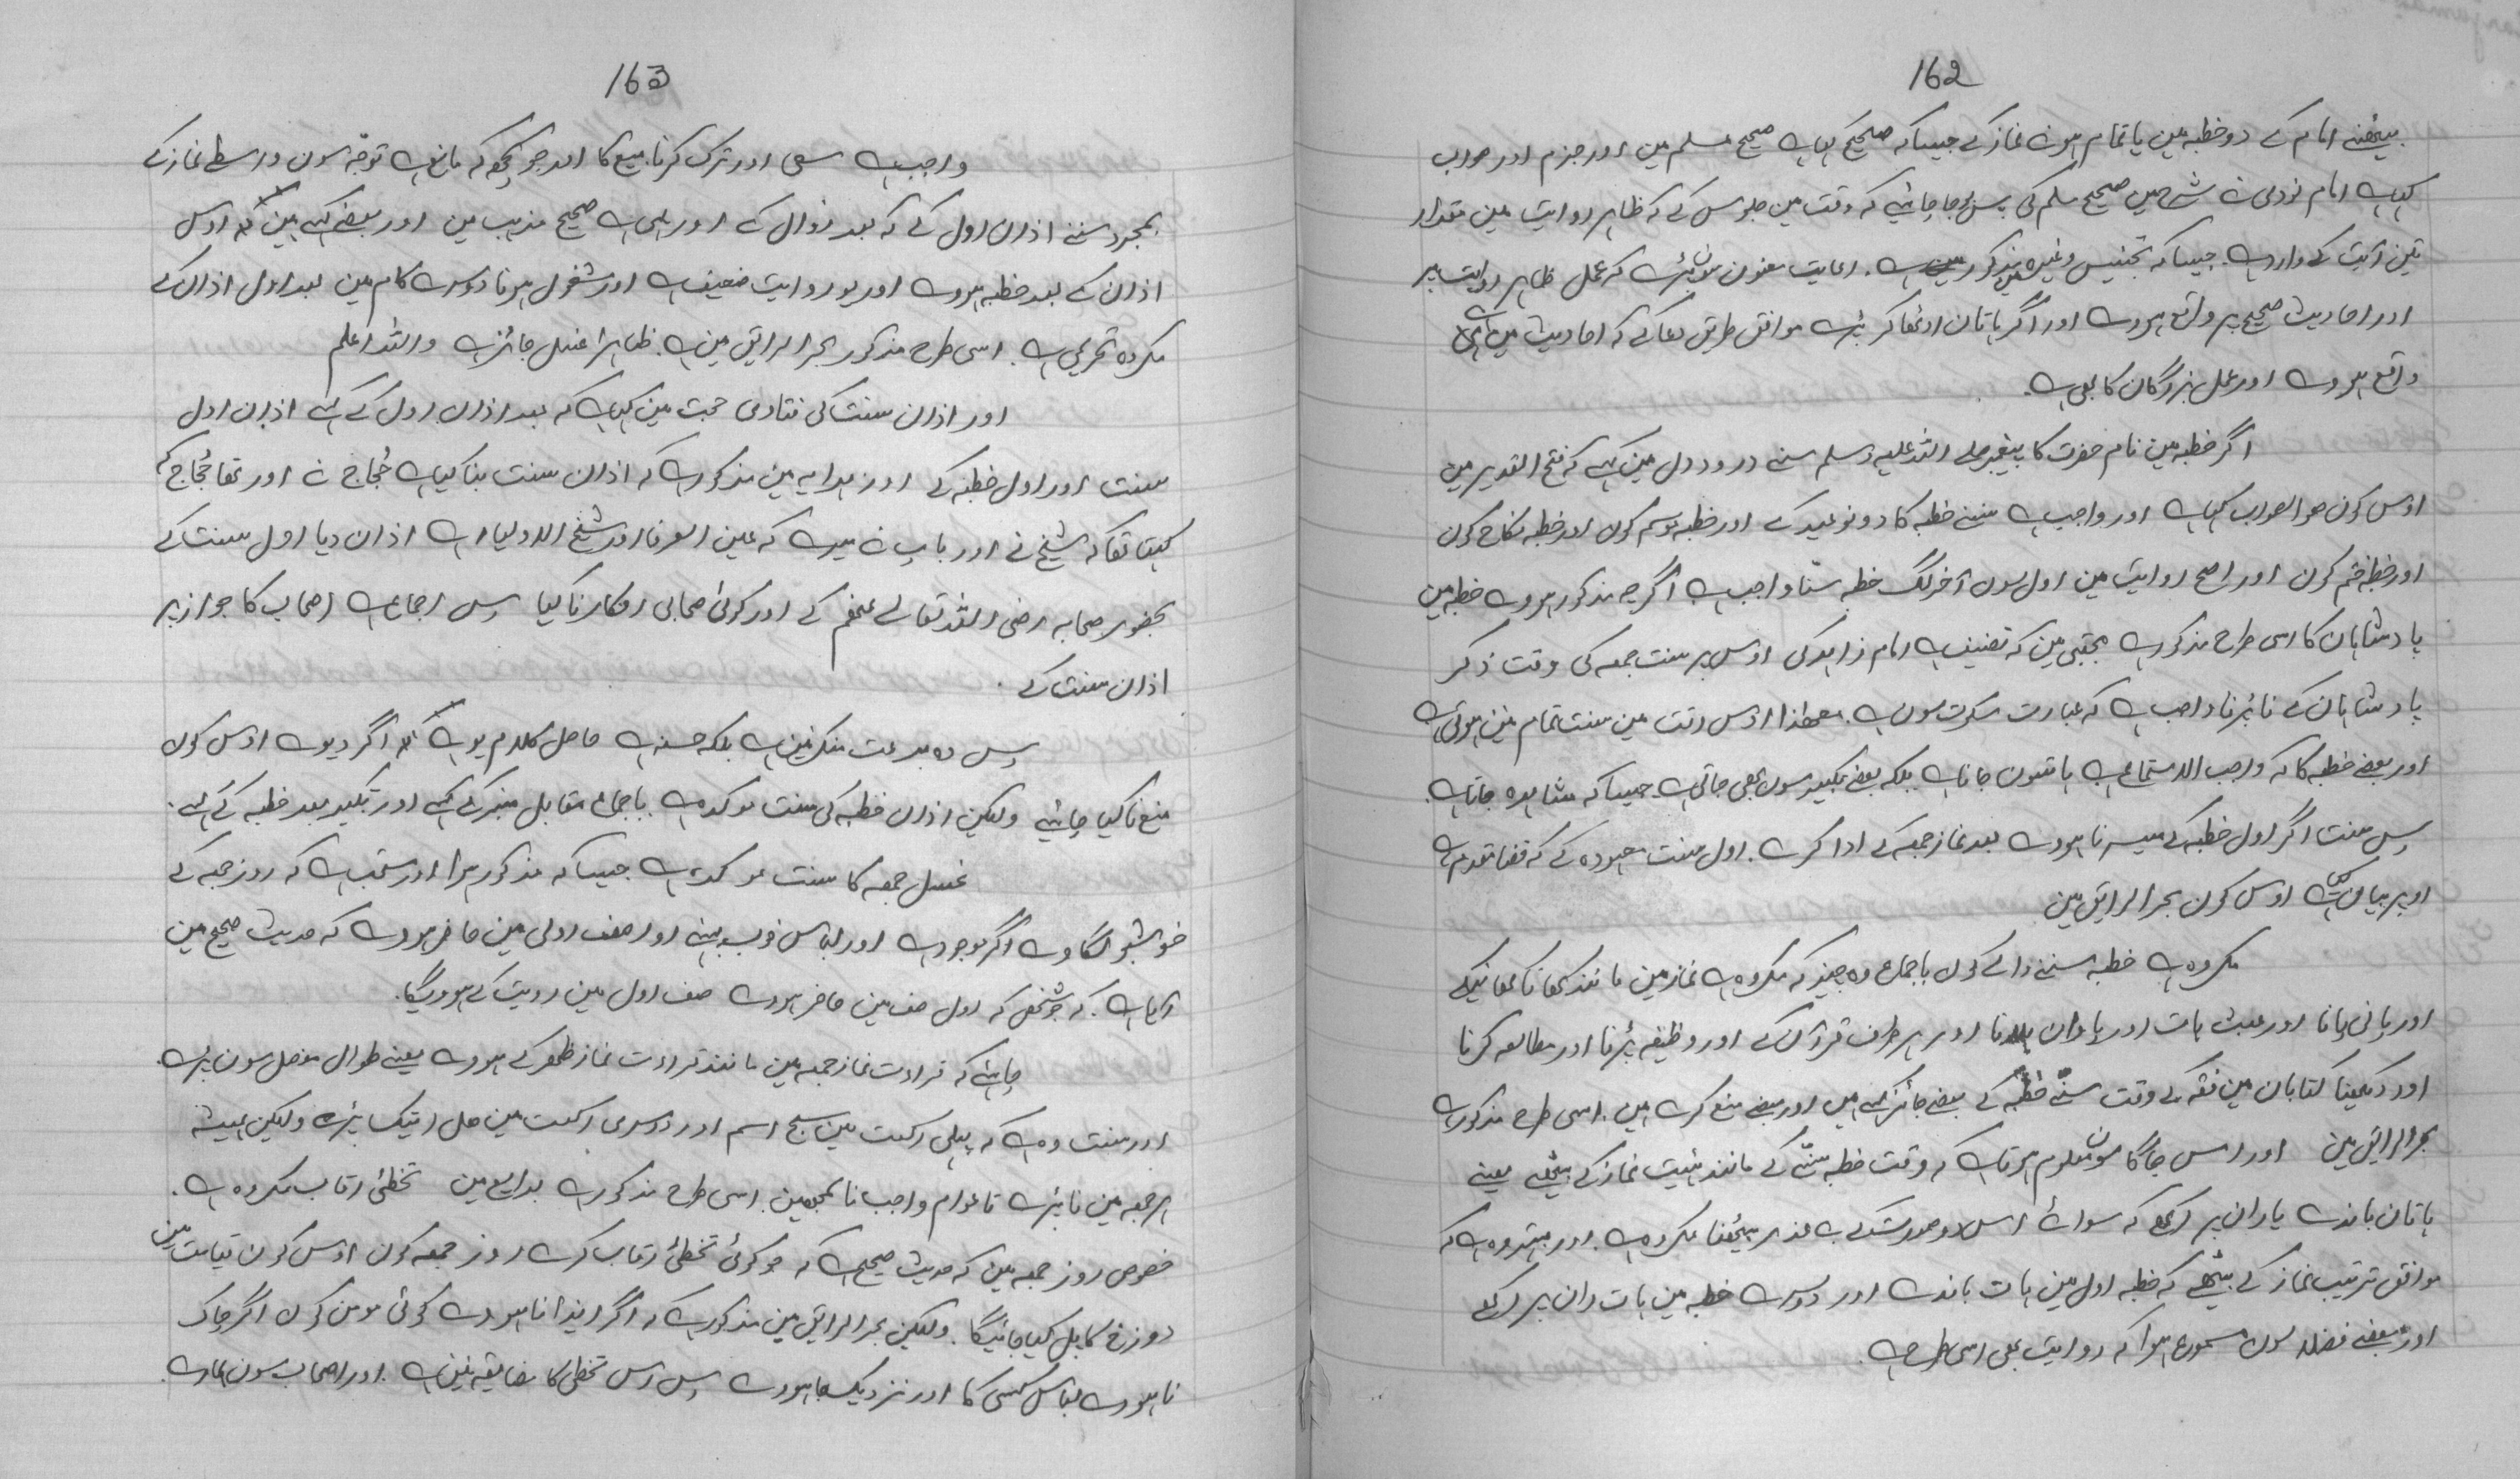 162
بیٹھنے امام کے دو خطبہ مین یا تمام ہونے نماز کے جیساکہ صحیح کیا ہے صحیح مسلم مین اور جزم اور صواب
کیا ہے امام نووی نے شرح مین صحیح مسلم کی پس چاہئیے کہ وقت مین جلوس کے کہ ظاہر روایت مین مقدار
تین آیت کے وارد ہے جیساکہ تجنیس وغیرہ مین مذکور ہے۔ رعایت مضمون سون پڑے کہ عمل ظاہر روایت پر
اور احادیث صحیح پر واقع ہووے اور اگر ہاتان اوٹھاکر پڑے موافق طریق دعا کے کہ احادیث مین
واقع ہووے اور عمل بزرگان کا بھی ہے۔
اگر خطبہ مین نام حضرت کا پیغمبر صلے اللہ علیہ وسلم سنے درود دل مین کہے کہ فتح القدیر مین
اوس کون ھو الصواب کیا ہے اور واجب ہے سننے خطبہ کا دونو عید کے اور خطبہ موسم کون اور خطبہ نکاح کون
اور خطبہ ختم کون اور اصح روایت مین اول سون آخر لگ خطبہ سننا واجب ہے اگرچہ مذکور ہووے خطبہ مین
پادشاہان کا اسی طرح مذکور ہے مجتبی مین کہ تصنیف ہے امام زاہد کی اوس پر سنت جمعہ کی وقت ذکر
پادشاہان کے نا پڑنا واجب ہے کہ عبارت سکوت سون ہے۔ معھذا اوس وقت مین سنت تمام نین ہوتی ہے
اور بعضے خطبہ کا کہ واجب الاستماع ہے ہاتسون جاتا ہے بلکہ بعضے تکبیر سون بھی جاتی ہے جیساکہ مشاہدہ جاتا ہے
پس سنت اگر اول خطبہ کے میسر نا ہووے بعد نماز جمعہ کے ادا کرے۔ اول سنت معہودہ کے کہ قضا مقدم ہے
اوپر بیان کیا ہے اوس کون بحر الرایق مین
مکروہ ہے خطبہ سننے والے کون باجماع وہ چیز کہ مکروہ ہے نماز مین مانند کھانا کھانیکے
اور پانی پینا اور عبث بات اور پاوان ہلانا اور ہر طرف قرآن کے اور وظیفہ پڑنا اور مطالعہ کرنا
اور دیکھنا کتابان مین فقہ کے وقت سننے خطبہ کے بعضے جائز کہے ہین اور بعضے منع کرے ہین۔ اسی طرح مذکور ہے
بحر الرایق مین اور اس جاگا سون معلوم ہوتا ہے کہ وقت خطبہ سننے کے مانند ہیئت نماز کے بیٹھے یعنے
ہاتان باندے یا ران پر رکھے کہ سوائے اس دو صورت کے بے عذر بیٹھنا مکروہ ہے اور بہتر وہ ہے کہ
موافق ترتیب نماز کے بیٹھے کہ خطبہ اول مین ہات باندے اور دوسرے خطبہ مین ہات ران پر رکھے
اور بعضے فضلا سون مسموع ہوا کہ روایت بھی اسی طرح ہے۔
163
واجب ہے سعی اور ترک کرنا بیع کا اور جو کچھ کہ مانع ہے توجہ سون واسطے نماز کے
بمجرد سننے اذان اول کے کہ بعد زوال کے اور یہی ہے صحیح مذہب مین اور بعضے کہے ہین کہ اوس
اذان کے بعد خطبہ ہووے اور یو روایت ضعیف ہے اور مشغول ہونا دوسرے کام مین بعد اول اذان کے
مکروہ تحریمی ہے۔ اسی طرح مذکور بحر الرایق مین ہے۔ ظاہرا غسل جائز ہے واللہ اعلم
اور اذان سنت کی فتاوی حجت مین کہا ہے کہ بعد اذان اول کے ہے اذان اول
سنت اور اول خطبہ کے اور ہدایہ مین مذکور ہے کہ اذان سنت بنا کیا ہے حُجاج نے اور تھا حُجاج کہ
کہتا تھا کہ شیخ نے اور باپ نے میرے کہ عین العرفا اور شیخ الاولیا ہے اذان دیا اول سنت کے
بحضور صحابہ رضی اللہ تعالے عنھم کے اور کوئی صحابی انکار نا کیا پس اجماع ہے اصحاب کا جواز پر
اذان سنت کے۔
پس وہ بدعت منکر نین ہے بلکہ حسنہ ہے حاصل کلام یو ہے کہ اگر دیوے اوس کون
منع نا کیا چاہئیے ولیکن اذان خطبہ کی سنت موکدہ ہے باجماع مقابل منبر کے کہے اور تکبیر بعد خطبہ کے کہے۔
غسل جمعہ کا سنت موکدہ ہے جیساکہ مذکور ہوا اور مستحب ہے کہ روز جمعہ کے
خوشبو لگاوے اگر موجود ہے اور لباس خوب پہنے اور صف اولی مین حاضر ہووے کہ حدیث صحیح مین
آیا ہے۔ کہ جو شخص کہ اول صف مین حاضر ہووے صف اول مین رویت کے ہوویگا۔
چاہئے کہ قراءت نماز جمعہ مین مانند قراءت نماز ظھر کے ہووے یعنے طوال مفصل سون پڑے۔
اور سنت وہ ہے کہ پہلی رکعت مین سبح اسم اور دوسری رکعت مین ھل اتیک پڑے ولیکن ہمیشہ
ہر جمعہ مین نا پڑے تا عوام واجب نا سمجھین۔ اسی طرح مذکور ہے بدایع مین تخطئ رقاب مکروہ ہے۔
خصوص روز جمعہ مین کہ حدیث صحیح ہے کہ جو کوئی تخطئ رقاب کرے روز جمعہ کون اوس کون قیامت مین
دوزخ کا پل کیا جائیگا۔ ولیکن بحر الرایق مین مذکور ہے کہ اگر ایذا نا ہووے کوئی مومن کون اگر چاک
نا ہووے لباس کسی کا اور نزدیک جا ہووے پس اس تخطی کا مضایقہ نین ہے۔ اور اصحاب سون ہمارے۔